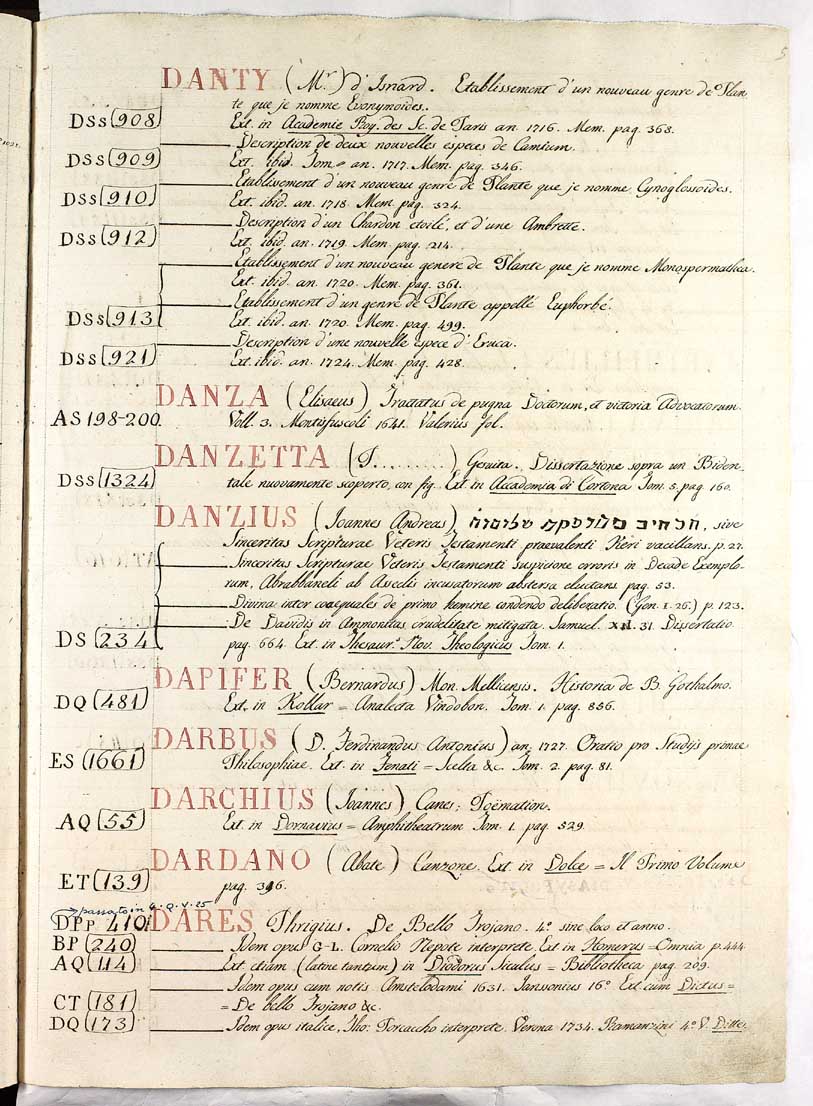 5
DANTY (Mr.) d'Isnard. Etablissement d'un nouveau genre de Plan
te que je nomme Evonymoides.
DSs 908 Ext. in Academie Roy. des Sc. de Paris an. 1716. Mem. pag. 368.
Description de deux nouvelles especes de Camium.
DSs 909 Ext. ibid. Tom = an. 1717. Mem. pag. 346.
Etablissement d'un nouveau genre de Plante que je nomme Cynoglossoides.
DSs 910 Ext. ibid. an. 1718. Mem. pag. 324.
Description d'un Chardon etoilé, et d'une Ambrette.
DSs 912 Ext. ibid. an. 1719. Mem. pag. 214.
Etablissement d'un nouveau genere de Plante que je nomme Monospermathea.
Ext. ibid. an. 1720. Mem. pag. 361.
Etablissement d'un genre de Plante appellé Euphorbé.
DSs 913 Ext. ibid. an. 1720. Mem. pag. 499.
Description d'une nouvelle espece d'Eruca.
DSs 921 Ext. ibid. an. 1724. Mem. pag. 428.
DANZA (Elisaeus) Tractatus de pugna Doctorum, et victoria Advocatorum
AS 198-200. Voll. 3. Montisfuscoli 1641. Valerius fol.
DANZETTA (P.........) Gesuita. Dissertazione sopra un Biden,
DSs 1324 tale nuovamente scoperto, con fig. Ext. in Accademia di Cortona Tom. 5. pag. 160.
DANZIUS (Ioannes Andreas) , sive
Sinceritas Scripturae Veteris Testamenti praevalenti Keri vacillans. p. 27.
Sinceritas Scripturae Veteris Testamenti suspicione erroris in Decade Exemplo-
rum, Abrabbaneli ab Aseclis incusatorum abstersa eluctans pag. 53.
Divina inter coaequales de primo homine condendo deliberatio. (Gen. I. 26.) p. 123.
De Davidis in Ammonitas crudelitate mitigata. Samuel XII. 31. Dissertatio
DS 234 pag. 664. Ext. in Thesaur. Nov. Theologicus Tom. 1.
DAPIFER (Bernardus) Mon. Mellicensis. Historia de B. Gothalmo.
DQ 481 Ext. in Kollar = Analecta Vindobon. Tom. 1. pag. 856.
DARBUS (D. Ferdinandus Antonius) an. 1727. Oratio pro Studijs primae
ES 1661 Philosophiae. Ext. in Ienati = Scelta &c. Tom. 2. pag. 81.
DARCHIUS (Ioannes) Canes; Poëmation.
AQ 55 Ext. in Dornavius = Amphitheatrum Tom. 1. pag. 529.
DARDANO (Abate) Canzone. Ext. in Dolce = Il Primo Volume
ET 139 pag. 396.
→ passato in 4. Q. V. 25
DPp 410 DARES Phrigius. De Bello Trojano. 4º sine loco et anno.
BP 240 Idem opus G-L. Cornelio Nepote interprete. Ext. in Homerus = Omnia p. 444
AQ 114 Ext etiam (latine tantum) in Diodorus Siculus = Bibliotheca pag. 209.
Idem opus cum notis Amstelodami 1631. Ianssonius 16º Ext. cum Dictus =
CT 181 = De bello Trojano &c.
DQ 173 Idem opus italice, Tho: Porcaccho interprete. Verona 1734. Ramanzini 4º V. Ditte.